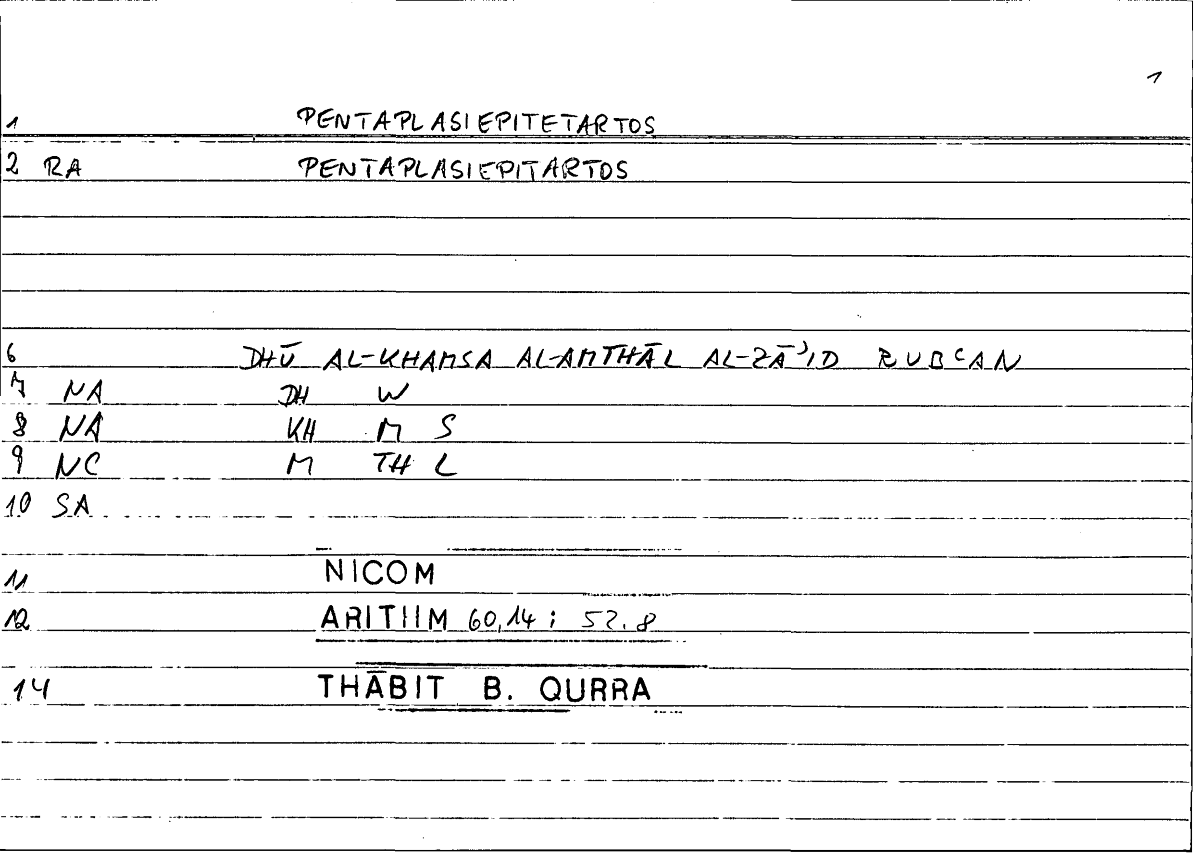 1
1 PENTAPLASIEPITETARTOS
2 RA PENTAPLASIEPITARTOS
6 DHŪ AL-KHAMSA AL-AMTHĀL AL-ZĀʾID RUBʿAN
7 NA DH W
8 NA KH M S
9 NC M TH L
10 SA
11 NICOM
12 ARITHM 60,14 ; 52.8
14 THĀBIT B. QURRA